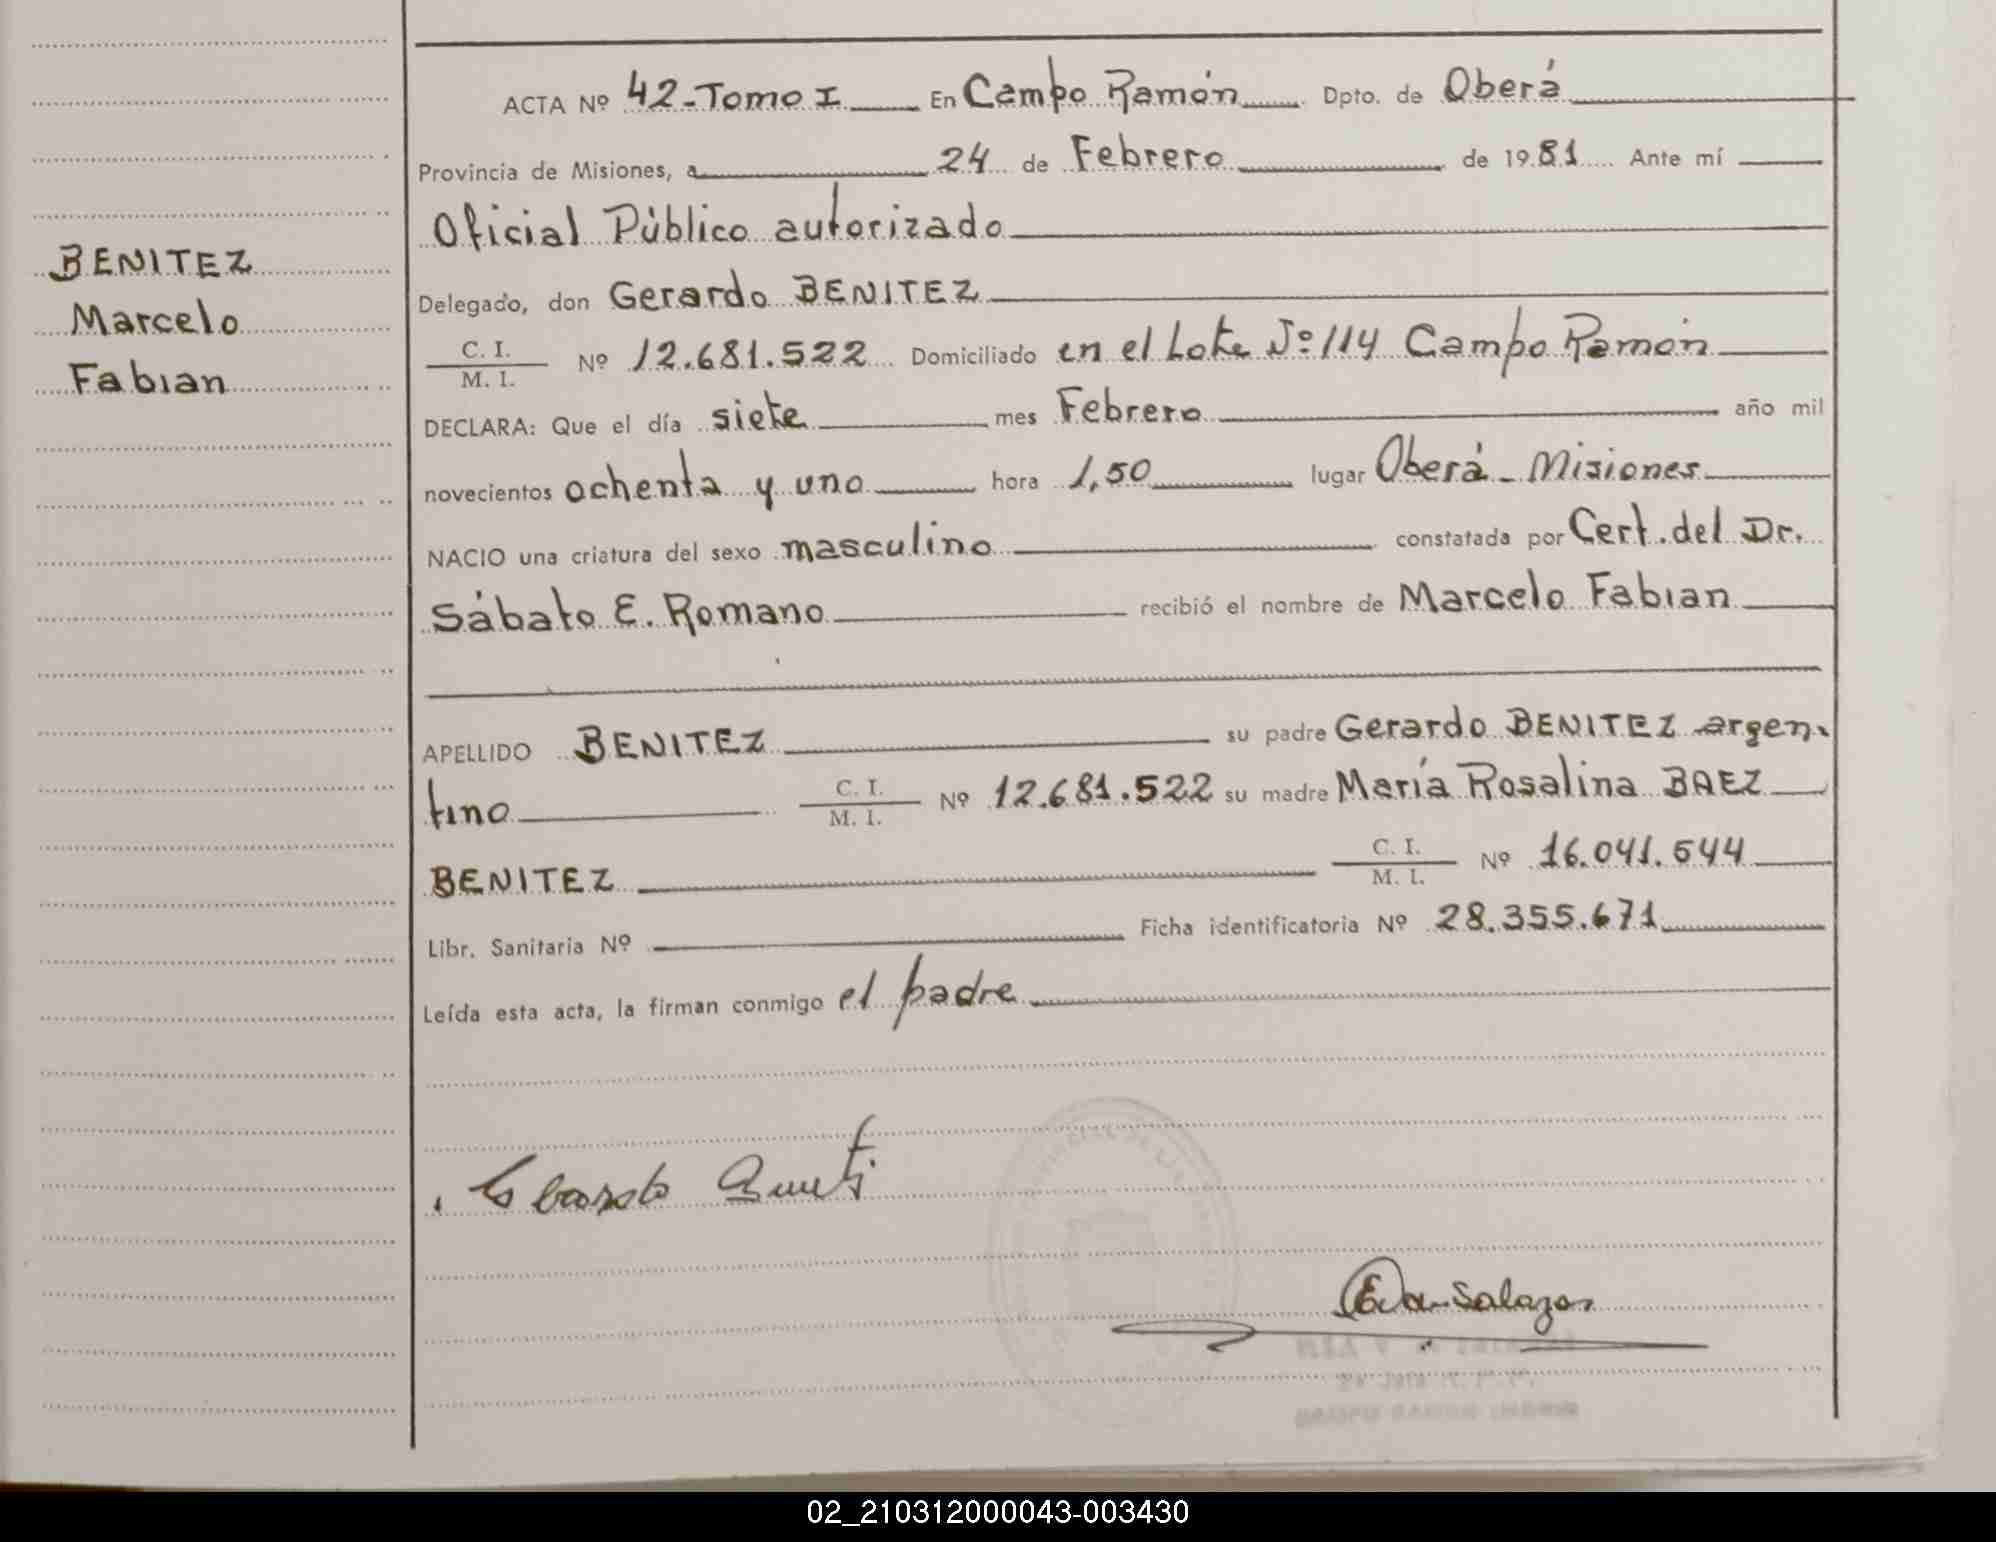 ACTA Nº 42-Tomo I En Campo Ramón Dpto. de Oberá
Provincia de Misiones, a 24 de Febrero de 1981 Ante mí
Oficial Público autorizado
BENITEZ
Marcelo
Fabian
Delegado, don Gerardo BENITEZ
C. I.
M. I. Nº 12.681.522 Domiciliado en el Lote Nº 114 Campo Ramón
DECLARA: Que el día siete mes Febrero año mil
novecientos ochenta y uno hora 1,50 lugar Oberá - Misiones
NACIO una criatura del sexo masculino constatada por Cert. del Dr.
Sábato E. Romano recibió el nombre de Marcelo Fabian
APELLIDO BENITEZ su padre Gerardo BENITEZ argen-
tino C. I. M. I. Nº 12.681.522 su madre María Rosalina BAEZ
BENITEZ C. I. M. I. Nº 16.041.544
Libr. Sanitaria Nº Ficha identificatoria Nº 28.355.671
Leída esta acta, la firman conmigo el padre
Salazar
02_210312000043-003430